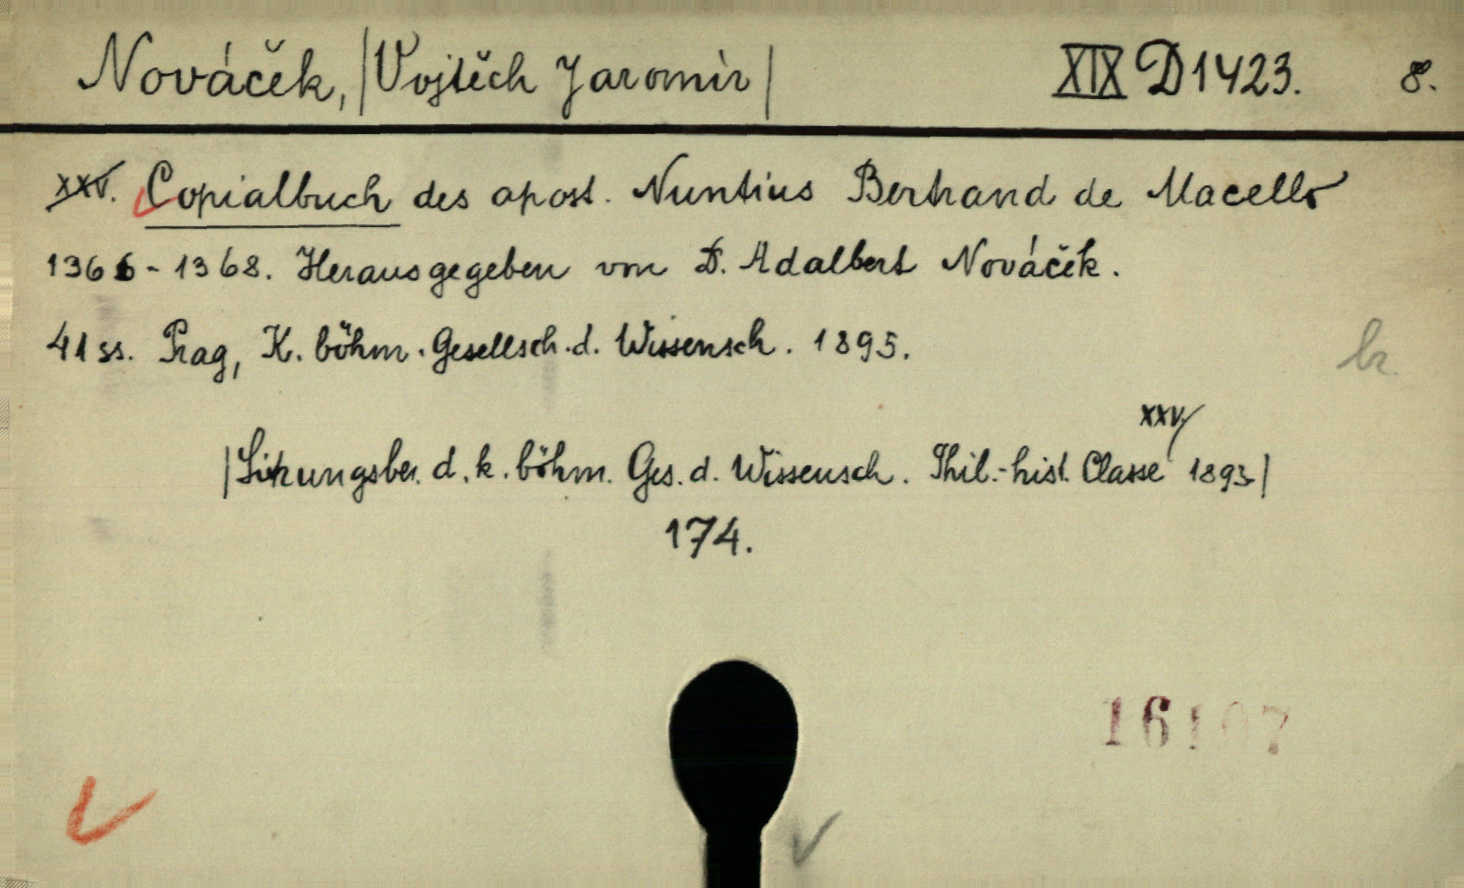 Nováček, |Vojtěch Jaromír| XIX D 1423. 8.
XXV. Copialbuch des apost. Nuntius Bertrand de Macello
1366-1368. Herausgegeben von D. Adalbert Nováček.
41 ss. Prag, K. böhm. Gesellsch. d. Wissensch. 1895.
br.
XXV
|Sitzungsber. d. k. böhm. Ges. d. Wissensch. Phil.-hist. Classe 1893|
174.
16107